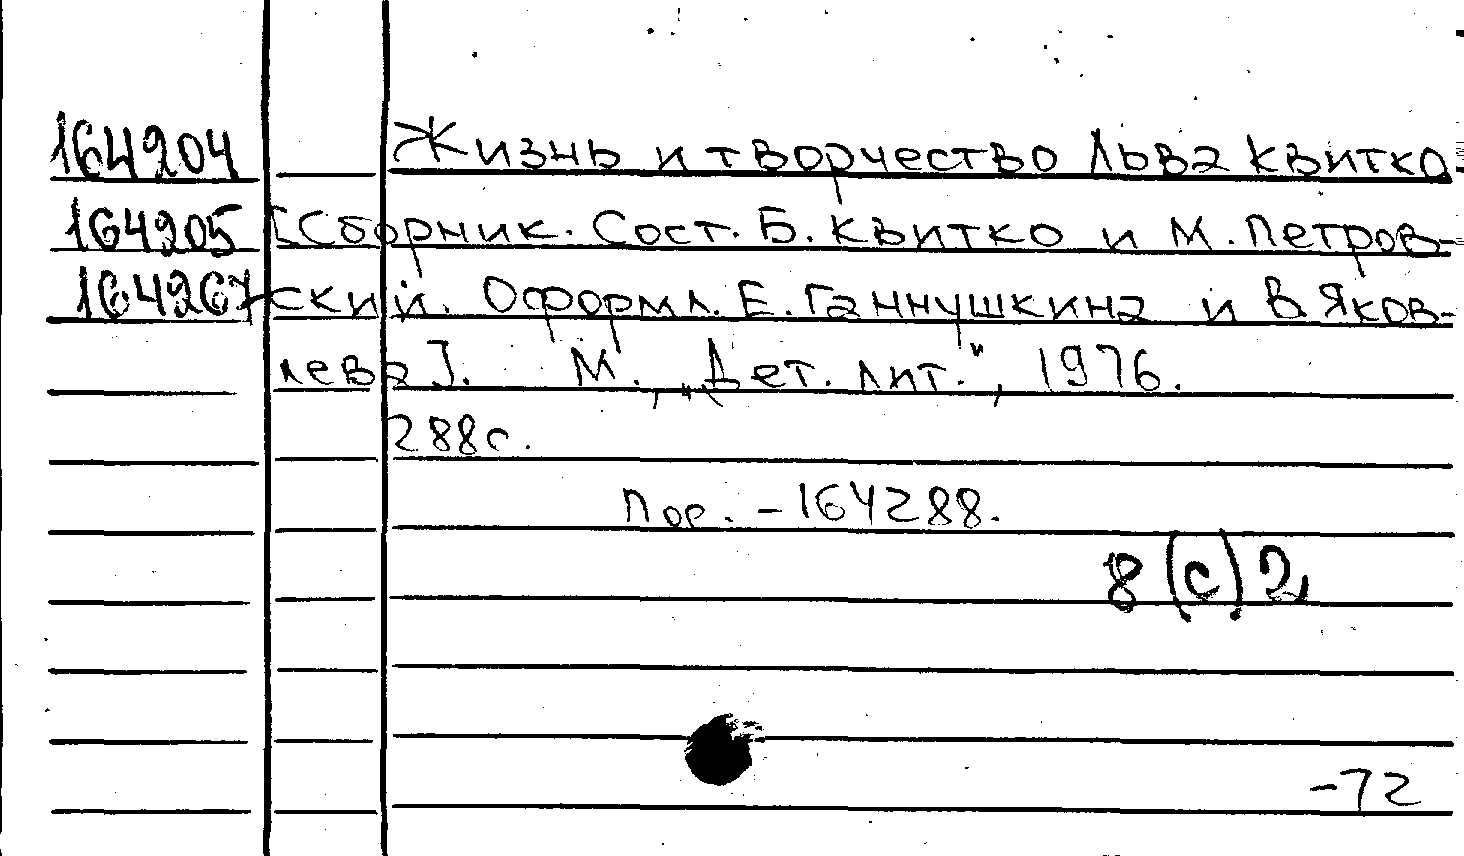 164204 Жизнь и творчество Льва Квитко
164205 [Сборник. Сост. Б. Квитко и М. Петров-
164267 ский. Оформл. Е. Ганнушкина и В Яков-
лева]. М., „Дет. лит.", 1976.
288с.
Пор. - 164288.
8(с)2
-72